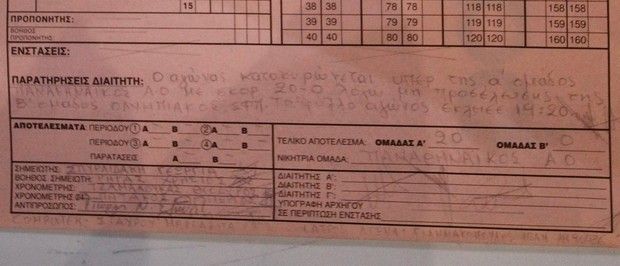 15 38 38 78 78 118 118 158 158
ΠΡΟΠΟΝΗΤΗΣ: 39 39 79 79 119 119 159 159
ΒΟΗΘΟΣ ΠΡΟΠΟΝΗΤΗΣ: 40 40 80 80 120 120 160 160
ΕΝΣΤΑΣΕΙΣ:
ΠΑΡΑΤΗΡΗΣΕΙΣ ΔΙΑΙΤΗΤΗ: Ο αγώνας κατακυρώνεται υπέρ της α' ομάδος
ΠΑΝΑΘΗΝΑΪΚΟΣ Α.Ο με σκορ 20-0 λόγω μη προσέλευσης της
Β' ομάδος ΟΛΥΜΠΙΑΚΟΣ ΣΦΠ. Το φύλλο αγώνος έκλεισε 19:20
ΑΠΟΤΕΛΕΣΜΑΤΑ: ΠΕΡΙΟΔΟΥ ① Α Β ② Α Β
ΠΕΡΙΟΔΟΥ ③ Α Β ④ Α Β
ΠΑΡΑΤΑΣΕΙΣ Α Β
ΤΕΛΙΚΟ ΑΠΟΤΕΛΕΣΜΑ: ΟΜΑΔΑΣ Α' 20 ΟΜΑΔΑΣ Β' 0
ΝΙΚΗΤΡΙΑ ΟΜΑΔΑ: ΠΑΝΑΘΗΝΑΪΚΟΣ ΑΟ
ΣΗΜΕΙΩΤΗΣ:
ΒΟΗΘΟΣ ΣΗΜΕΙΩΤΗ:
ΧΡΟΝΟΜΕΤΡΗΣ:
ΧΡΟΝΟΜΕΤΡΗΣ 24"
ΑΝΤΙΠΡΟΣΩΠΟΣ:
ΔΙΑΙΤΗΤΗΣ Α':
ΔΙΑΙΤΗΤΗΣ Β':
ΔΙΑΙΤΗΤΗΣ Γ':
ΥΠΟΓΡΑΦΗ ΑΡΧΗΓΟΥ
ΣΕ ΠΕΡΙΠΤΩΣΗ ΕΝΣΤΑΣΗΣ